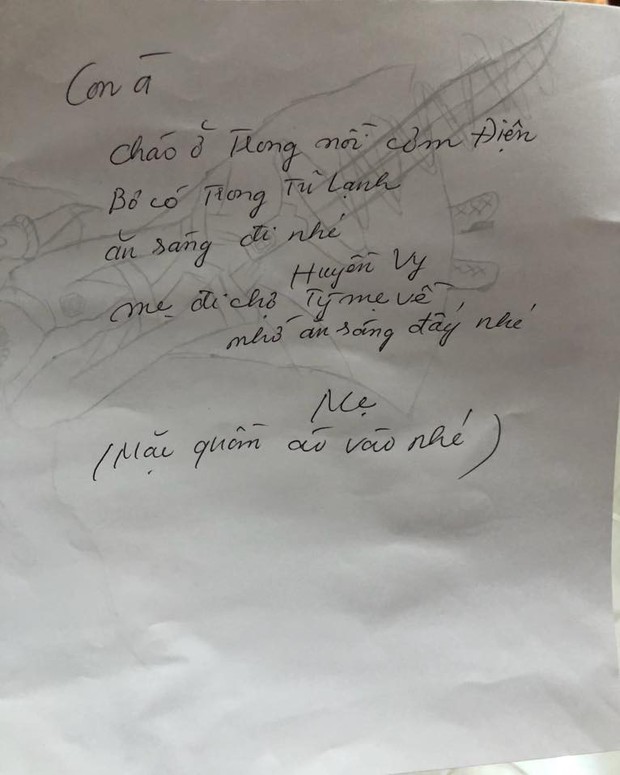 Con à
cháo ở trong nồi cơm Điện
Bò có trong Tủ Lạnh
ăn sáng đi nhé
Huyền Vy
mẹ đi chợ Tý mẹ về
nhớ ăn sáng đấy nhé
Mẹ
(Mặc quần áo vào nhé)